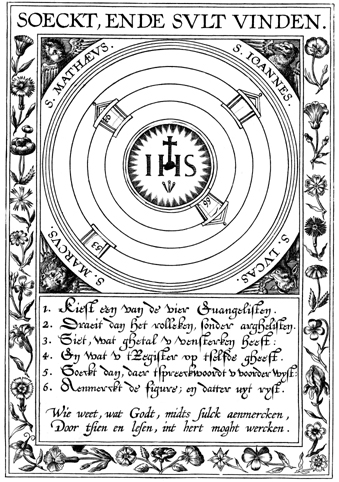 SOECKT, ENDE SVLT VINDEN.
S. MATHÆVS.
S. IOANNES.
IHS
53
S. MARCVS.
S. LVCAS.
1. Kiest een van de vier Euangelisten.
2. Draeit dan het rolleken, sonder arghelisten.
3. Siet, wat ghetal v vensterken heeft:
4. En wat v tRegister op tselfde gheeft.
5. Soeckt dan, daer tspreeckwoordt v voorder wyst
6. Aenmerckt de figure; en datter uyt ryst.
Wie weet, wat Godt, midts sulck aenmercken,
Door tsien en lesen, int hert moght wercken.